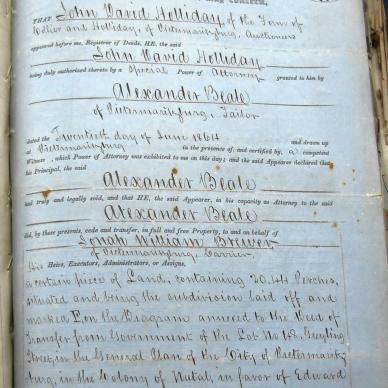 THAT John David Holliday, of the Firm of
and Holliday, of Pietermaritzburg, Auctioneers
appeared before me, Registrar of Deeds, HE, the said
John David Holliday
being duly authorised thereto by a Special Power of Attorney granted to him by
Alexander Beale
of Pietermaritzburg, Tailor
dated the Twentieth day of June 1864 and drawn up
at Pietermaritzburg in the presence of, and certified by, a competent
Witness, which Power of Attorney was exhibited to me on this day; and the said Appearer declared that
his Principal, the said
Alexander Beale
had truly and legally sold, and that HE, the said Appearer, in his capacity as Attorney to the said
Alexander Beale
did, by these presents, cede and transfer, in full and free Property, to and on behalf of
Jonah William Brewer
of Pietermaritzburg, Carrier.
His Heirs, Executors, Administrators, or Assigns,
a certain piece of Land, containing 20,44 Perches,
situated and being the subdivision laid off and
marked on the Diagram annexed to the Deed of
Transfer from Government of the Lot No 45, Greyling
Street, in the General Plan of the City of Pietermaritz
burg, in the Colony of Natal, in favor of Edward